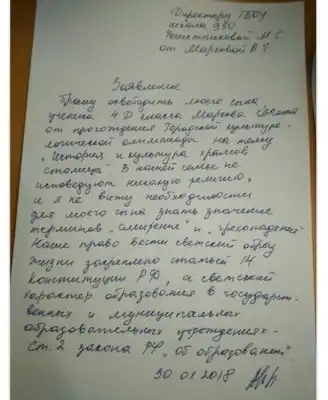 Директору ГБОУ
школа 950
Решетниковой М.С
от Марковой
Заявление
Прошу освободить моего сына,
ученика 4 Д класса Маркова
от прохождения Городской культуро-
логической олимпиады на тему
"История и культура храмов
столицы". В нашей семье не
исповедуют никакую религию,
и я не вижу необходимости
для моего сына знать значение
терминов "смирение" и "грехопадение"
Наше право вести светский образ
жизни закреплено статьёй 14
Конституции РФ, а светский
характер образования в государст-
венных и муниципальных
образовательных учреждениях -
ст. 2 закона РФ "об образовании".
2018